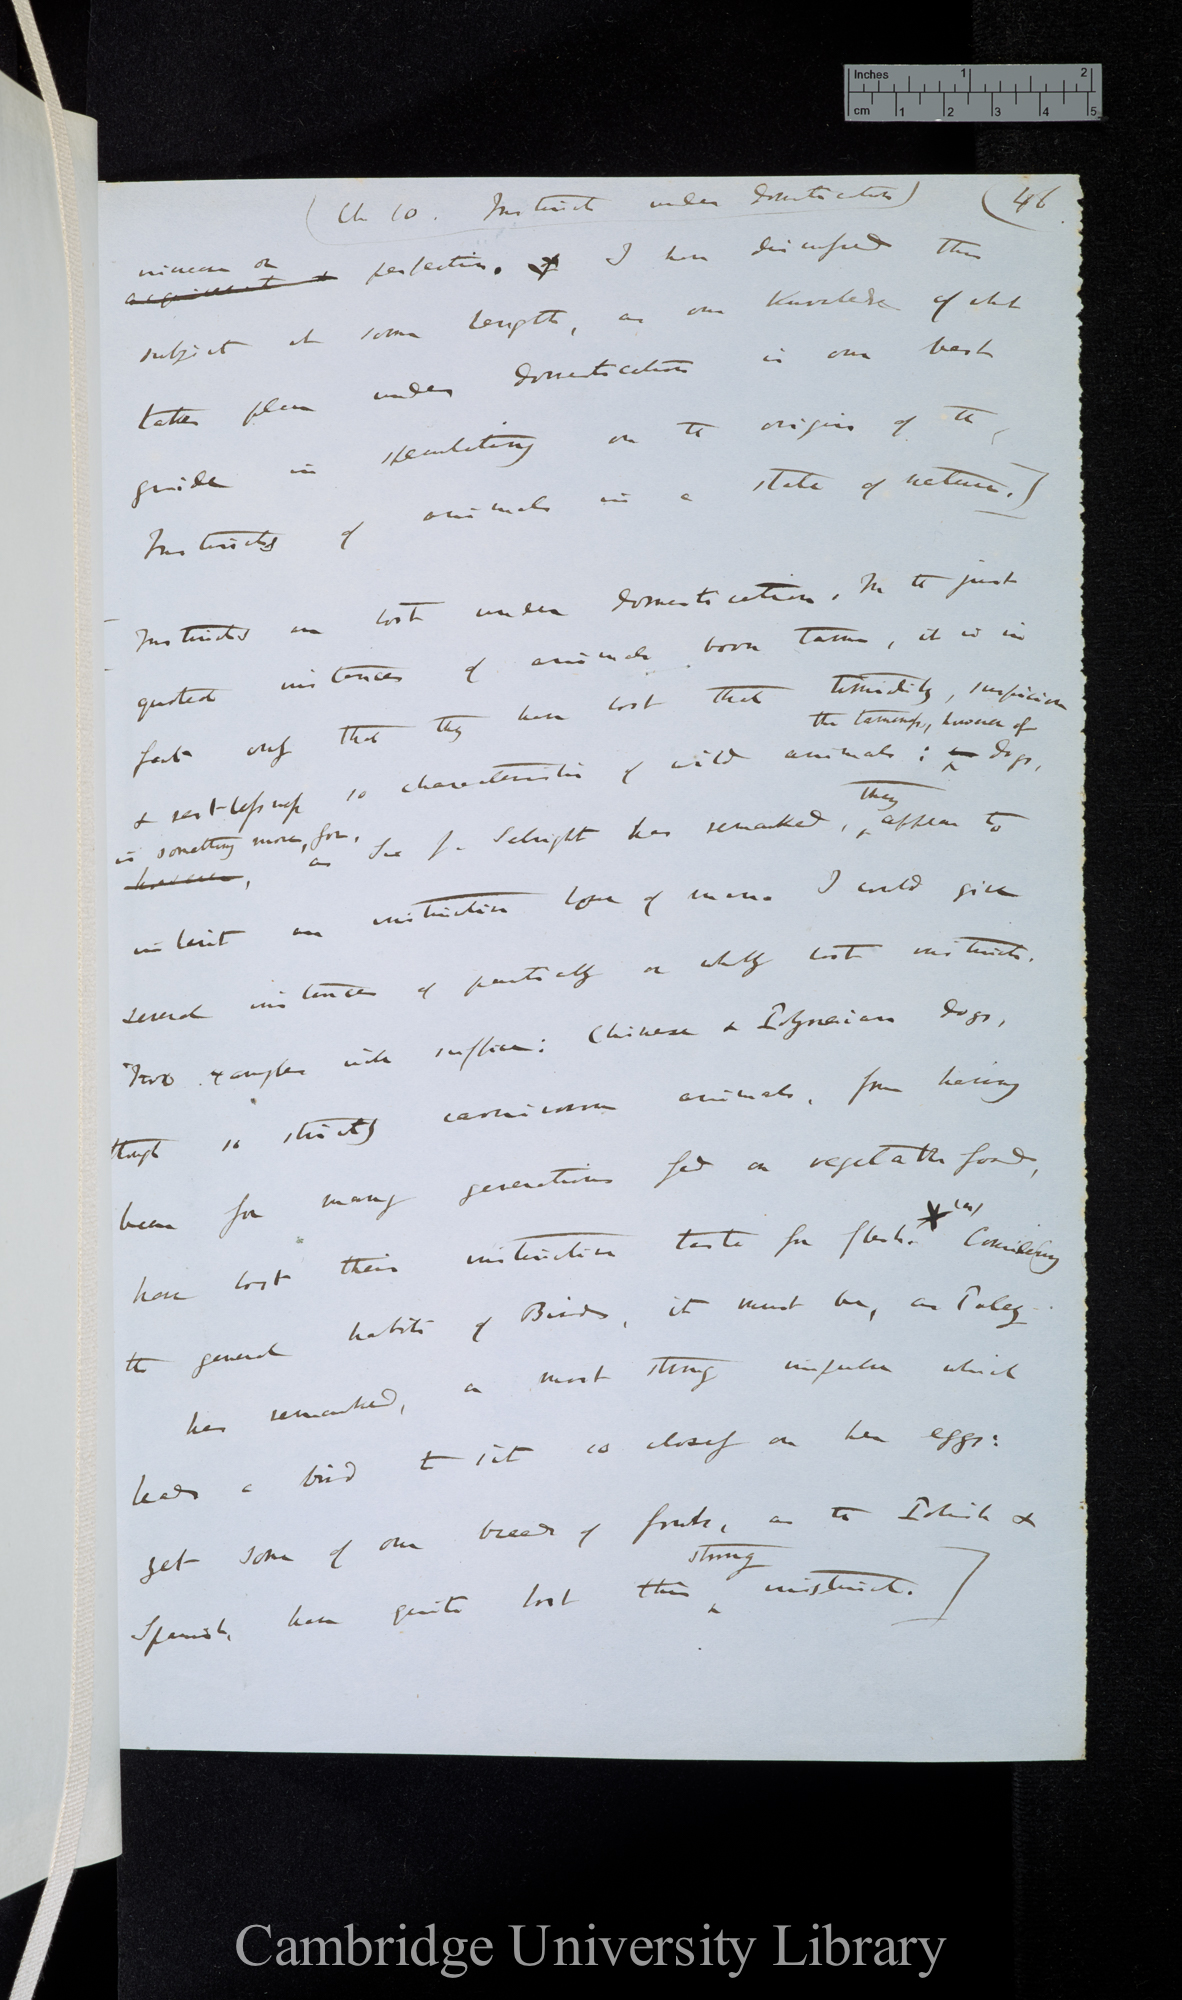 Inches 1 2
cm 1 2 3 4 5
(Ch 10. Instinct under domestication) (46
increase or
acquirement & perfection. I have discussed this
subject at some length, as our knowledge of what
takes place under domestication is our best
guide in speculating on the origin of the
Instincts of animals in a state of nature.)
Instincts are lost under domestication. In the just
quoted instances of animals born tame, it is in
fact only that they have lost that timidity, suspicion
the tameness, however of
& restlessness so characteristic of wild animals; dogs,
is something more, for, they
however, as Sir J. Sebright has remarked, appear to
inherit an instinctive love of man. I could give
several instances of partially or wholly lost instincts.
Two examples will suffice: Chinese & Polynesian dogs,
though so strictly carnivorous animals, from having
been for many generations fed on vegetable food,
have lost their instinctive taste for flesh. (a) Considering
the general habits of Birds, it must be, as Paley
has remarked, a most strong impulse which
leads a bird to sit so closely on her eggs:
yet some of our breeds of fowls, as the Polish &
strong
Spanish, have quite lost this instinct.]
Cambridge University Library